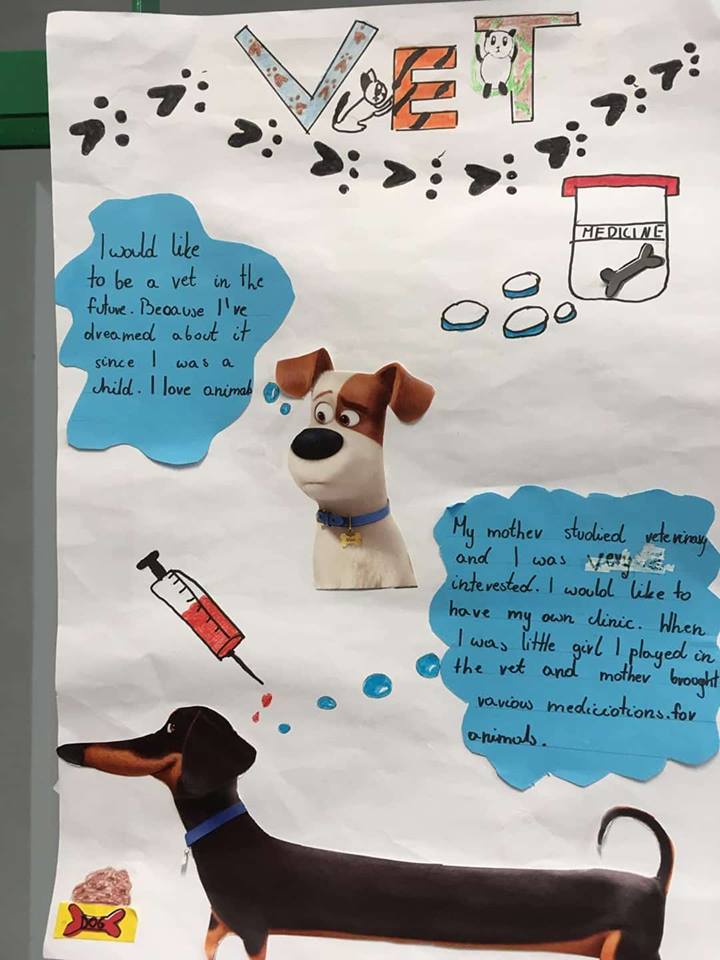 VET
MEDICINE
I would like
to be a vet in the
future. Because I've
dreamed about it
since I was a
child. I love animals
My mother studied veterinary
and I was very
interested. I would like to
have my own clinic. When
I was little girl I played in
the vet and mother brought
various mediciotions.for
animals.
DOG